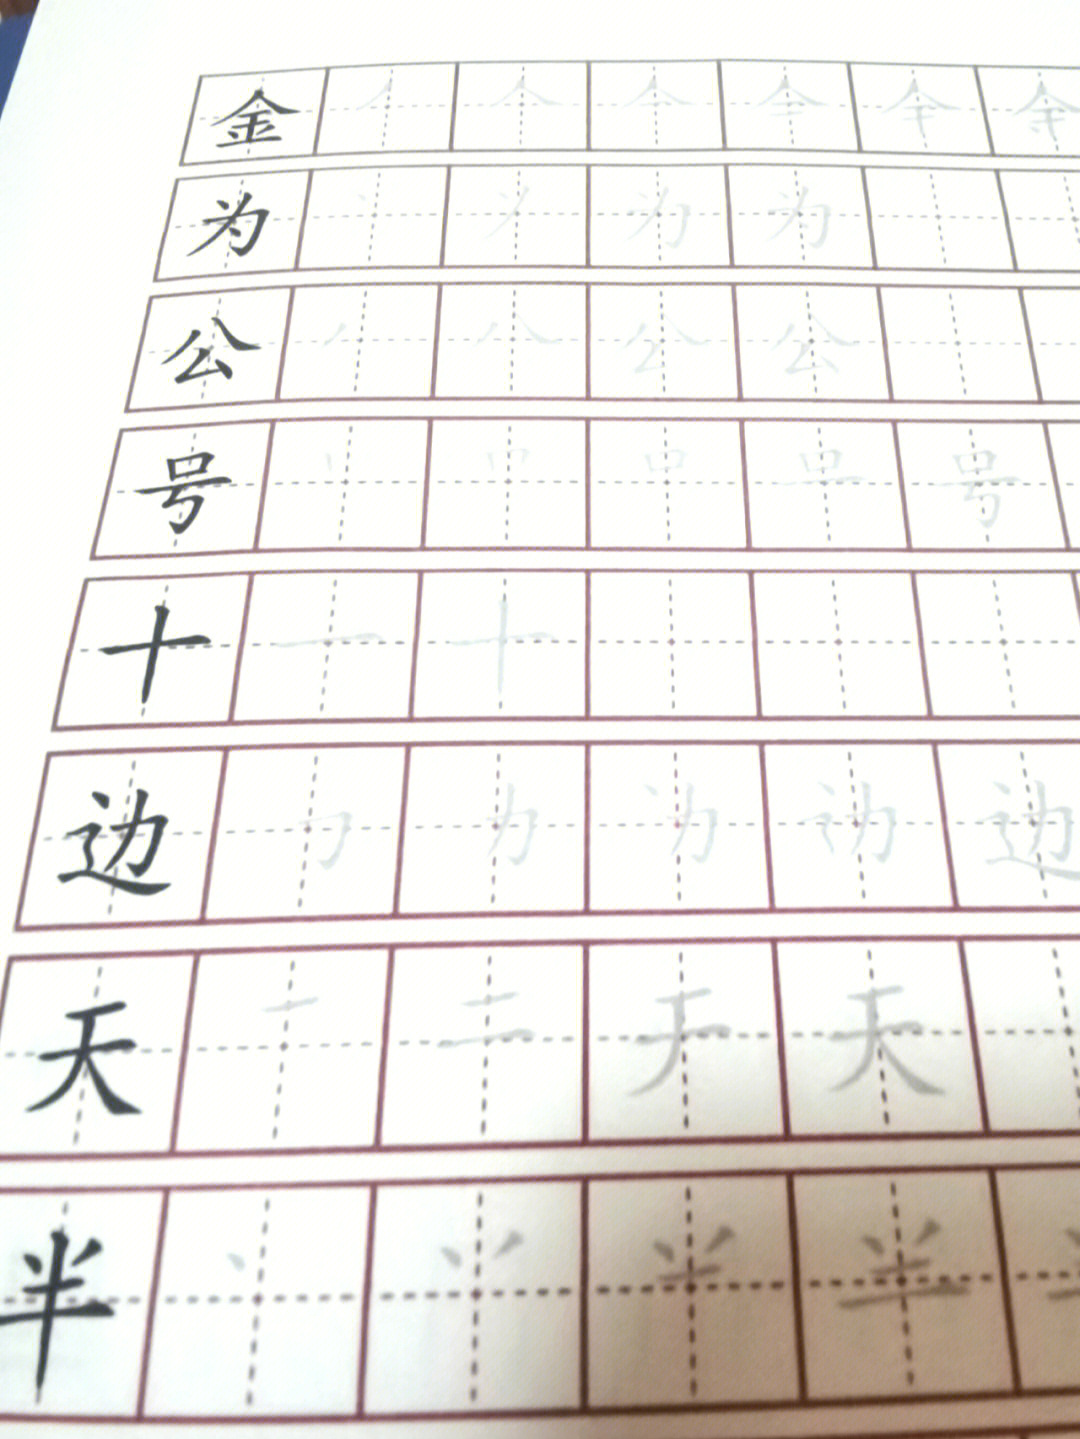 金
为
公
号
十
边
天
半